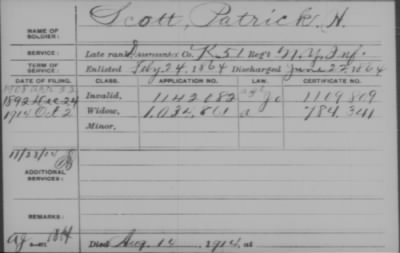 NAME OF SOLDIER: Scott, Patrick H.
SERVICE: Late rank Co. K 51 Regt N.Y. Inf.
TERM OF SERVICE: Enlisted Feby 24, 1864 Discharged June 27, 1864
DATE OF FILING. CLASS. APPLICATION NO. LAW. CERTIFICATE NO.
1892 Dec 24 Invalid, 1142082 1109809
1914 Oct 2 Widow, 1,032,861 a 784,
Minor,
11/23/14
ADDITIONAL SERVICES:
REMARKS:
Died Aug. 1914, at